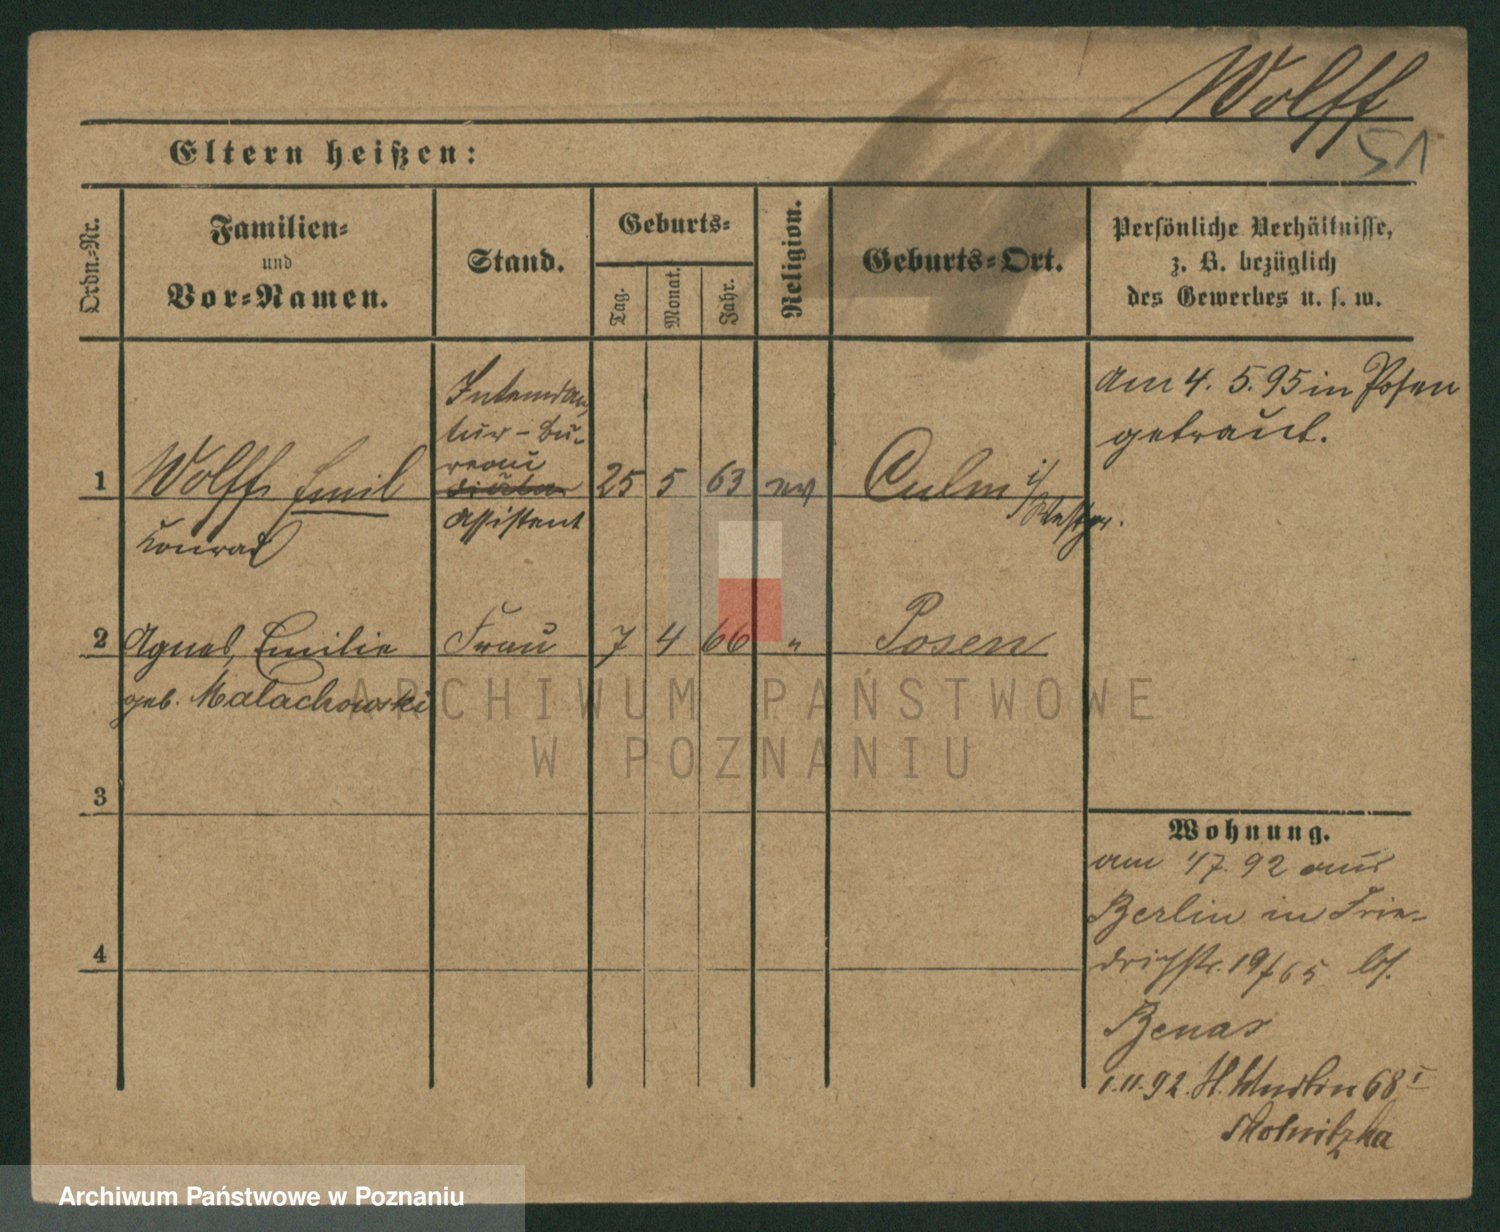 Wolff
51
Eltern heißen:
Ordn.-Nr.
Familien-
und
Vor-Namen.
Stand.
Geburts-
Tag.
Monat.
Jahr.
Religion.
Geburts-Ort.
Persönliche Verhältnisse,
z. B. bezüglich
des Gewerbes u. s. w.
1
Wolff, Emil
Konrad
Intendan
tur-Bu-
reau
Assistent
25
5
63
ev
Culm i/
Westpr.
Am 4. 5. 95 in Posen
getraut.
2
Agnes, Emilie
geb. Malachowski
Frau
7
4
66
"
Posen
3
4
Wohnung.
am 1/7. 92 aus
Berlin in Frie-
drichstr. 19/ 65 bf.
Benas
1. 11. 92. St. Martin 68 I
Skolnitzka
ARCHIWUM PAŃSTWOWE
W POZNANIU
Archiwum Państwowe w Poznaniu